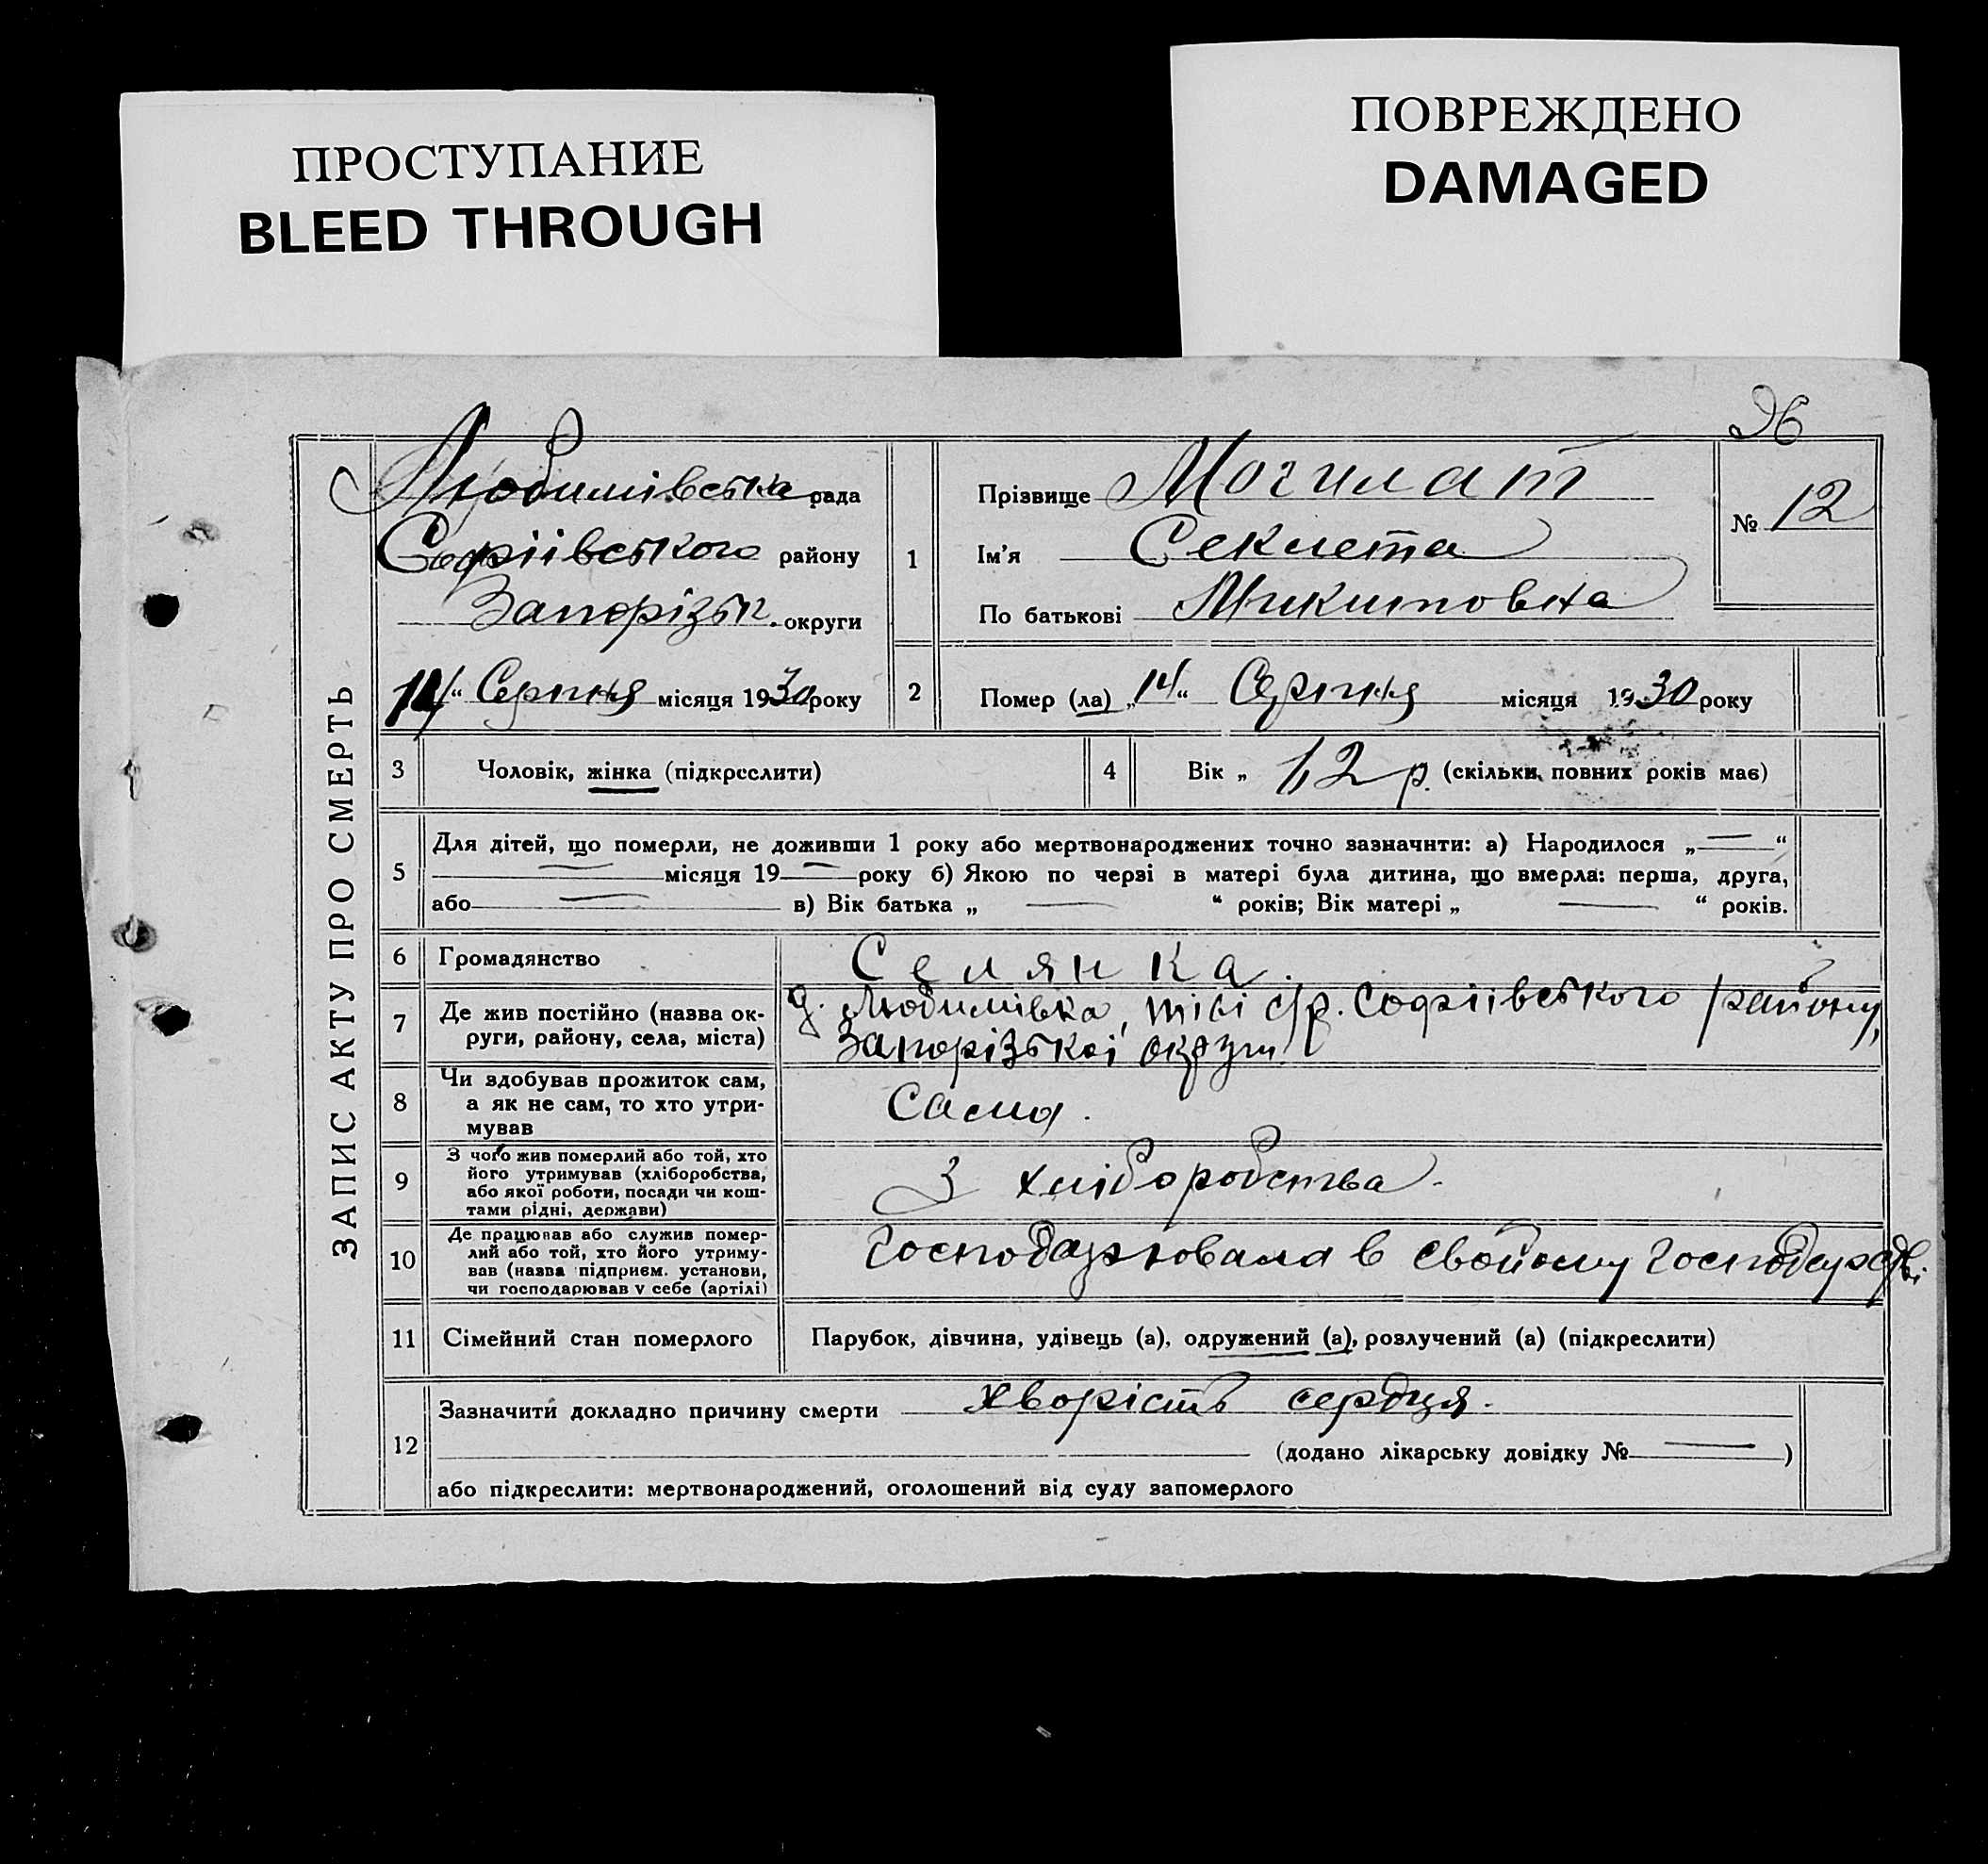 ПРОСТУПАНИЕ
BLEED THROUGH
ПОВРЕЖДЕНО
DAMAGED
ЗАПИС АКТУ ПРО СМЕРТЬ
Любимівська рада
Софіівського району
Запорізьк. округи
14 “ Серпня місяця 1930 року
1
Прізвище Могилат
Ім’я Секлета
По батькові Микитовна
№ 12
2
Помер (ла) „14“ Серпня місяця 1930 року
3 Чоловік, жінка (підкреслити)
4 Вік „ 62 р. (скільки повних років має)
5 Для дітей, що померли, не доживши 1 року або мертвонароджених точно зазначити: а) Народилося „—“
— місяця 19 — року б) Якою по черзі в матері була дитина, що вмерла: перша, друга,
або — в) Вік батька „ — “ років; Вік матері „ — “ років.
6 Громадянство Селянка.
7 Де жив постійно (назва ок-
руги, району, села, міста)
Любимівка, тієі с/р. Софіівського району,
Запорізькоі округи
8 Чи здобував прожиток сам,
а як не сам, то хто утри-
мував
Сама.
9 З чого жив померлий або той, хто
його утримував (хліборобства,
або якої роботи, посади чи кош-
тами рідні, держави)
З хліборобства.
10 Де працював або служив помер-
лий або той, хто його утриму-
вав (назва підприєм. установи,
чи господарював у себе (артілі)
Господарювала в свойому господарстві
11 Сімейний стан померлого Парубок, дівчина, удівець (а), одружений (а), розлучений (а) (підкреслити)
12 Зазначити докладно причину смерти хворість сердця.
(додано лікарську довідку № — )
або підкреслити: мертвонароджений, оголошений від суду запомерлого